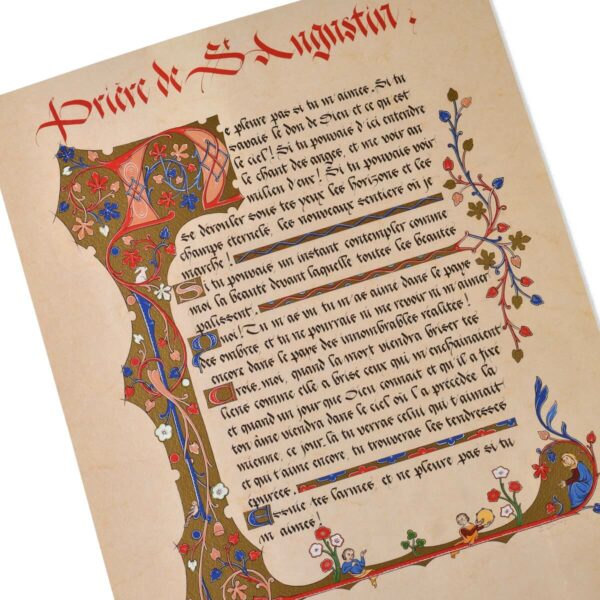 Prière de St Augustin.
Ne pleure pas si tu m'aimes. Si tu
savais le don de Dieu et ce qui est
le ciel! Si tu pouvais d'ici entendre
le chant des anges, et me voir au
milieu d'eux! Si tu pouvais voir
se derouler sous tes yeux les horizons et les
champs eternels, les nouveaux sentiers où je
marche!
Si tu pouvais un instant contempler comme
moi la beaute devant laquelle toutes les beautes
palissent,
Quoi! Tu m'as vu, tu m'as aime dans le pays
des ombres et tu ne pourrais ni me revoir ni m'aimer
encore dans le pays des innombrables realites!
Crois moi, quand la mort viendra briser tes
liens comme elle a brise ceux qui m'enchainaient
et quand un jour que Dieu connait et qu'il a fixe
ton âme viendra dans le ciel où l'a precédée la
mienne, ce jour là tu verras celui qui t'aimait
et qui t'aime encore, tu trouveras les tendresses
epurees.
Essuie tes larmes et ne pleure pas si tu
m'aimes!